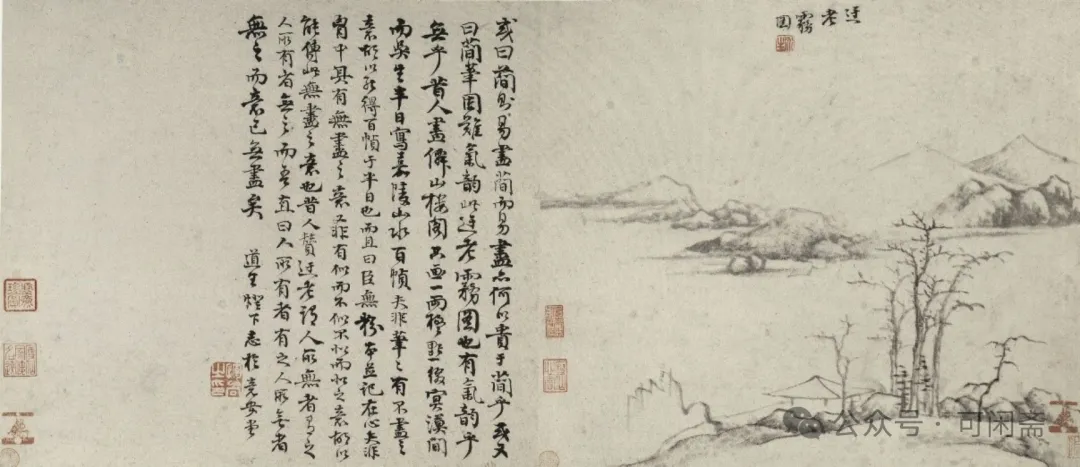 迂老霧圖
或曰簡則易盡簡而易盡亦何以貴于簡乎或又
曰簡筆固難氣韵此迂老霧圖也有氣韵乎
無乎昔人畫僊山樓閣只畫一兩點後冥漠間
而吳生半日寫嘉陵山水百幀夫非筆々有不盡之
意故以能得百幀于半日也而且曰臣無粉本並記在心夫非
胷中具有無盡之意又非有似而不似不似而似之意故以
能傳此無盡之意也昔人贊迂老謂人所無者有之
人所有者無之而吾直曰人所有者有之人所無者
無之而意已無盡矣 道生燈下志於安堂
公众号·可闲斋